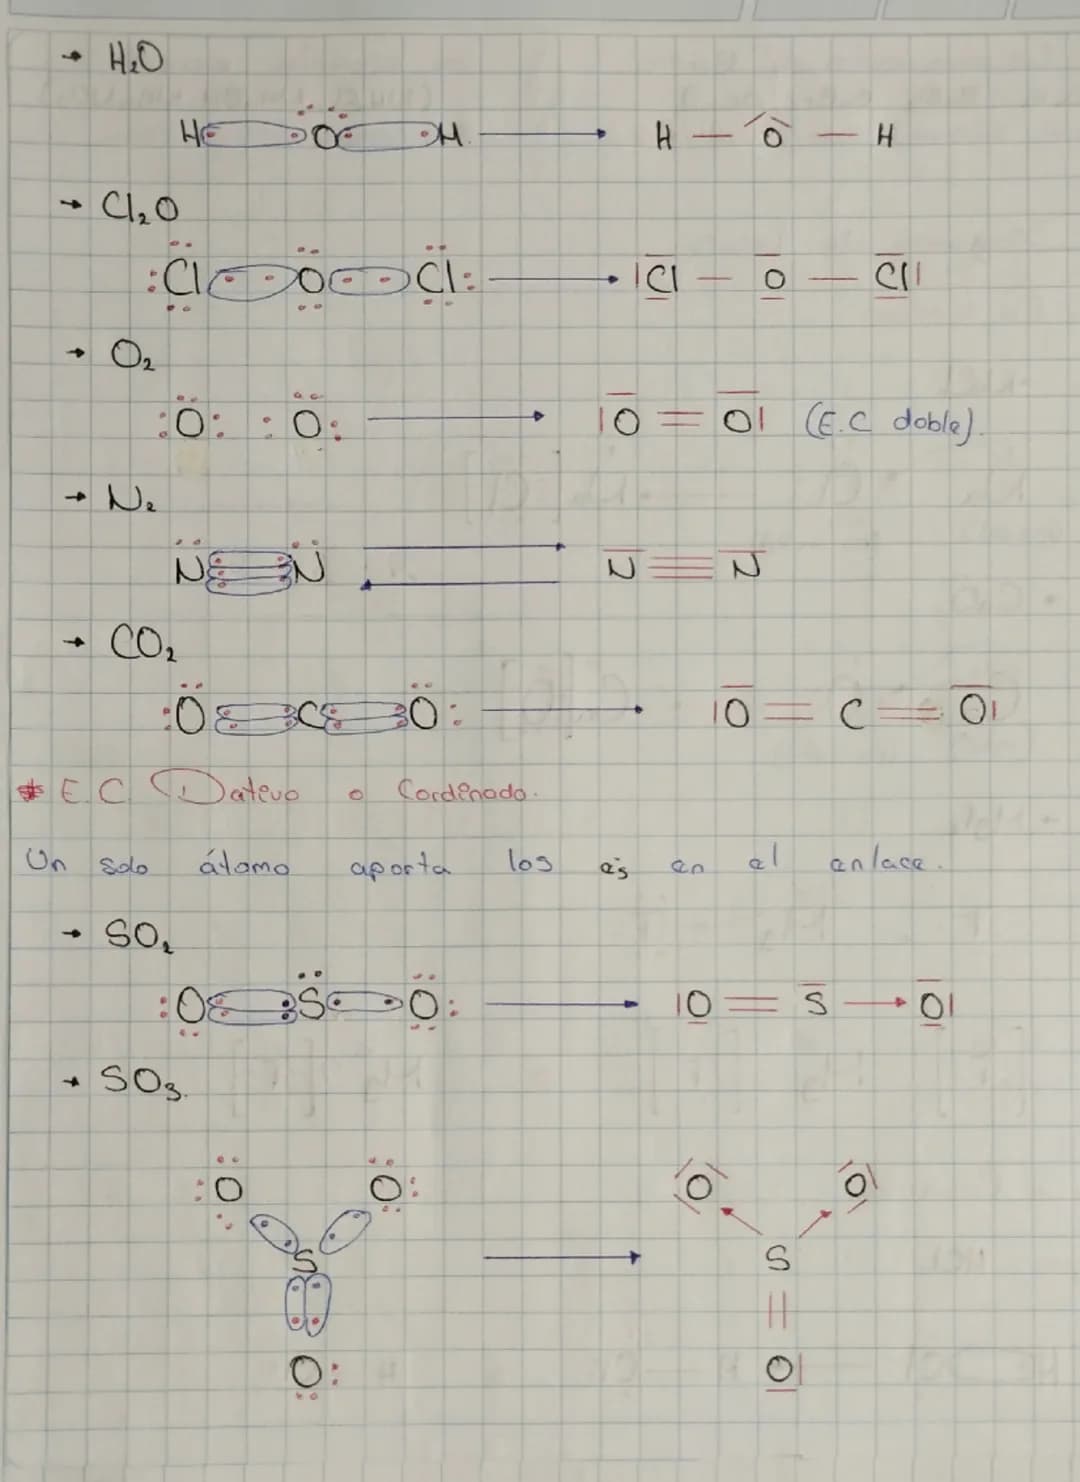 → H₂O
H O H → H — O — H
→ Cl₂O
:Cl O Cl: → |Cl — O — Cl|
→ O₂
:O: :O: → |O = O| (E.C doble).
→ N₂
N N N ≡ N
→ CO₂
:O C O: → |O = C = O|
* E.C. Dativo o Cordinado.
Un solo átomo aporta los e's en el enlace.
→ SO₂
:O S O: → |O = S → O|
→ SO₃.
:O O: O O
S → S
O: O|